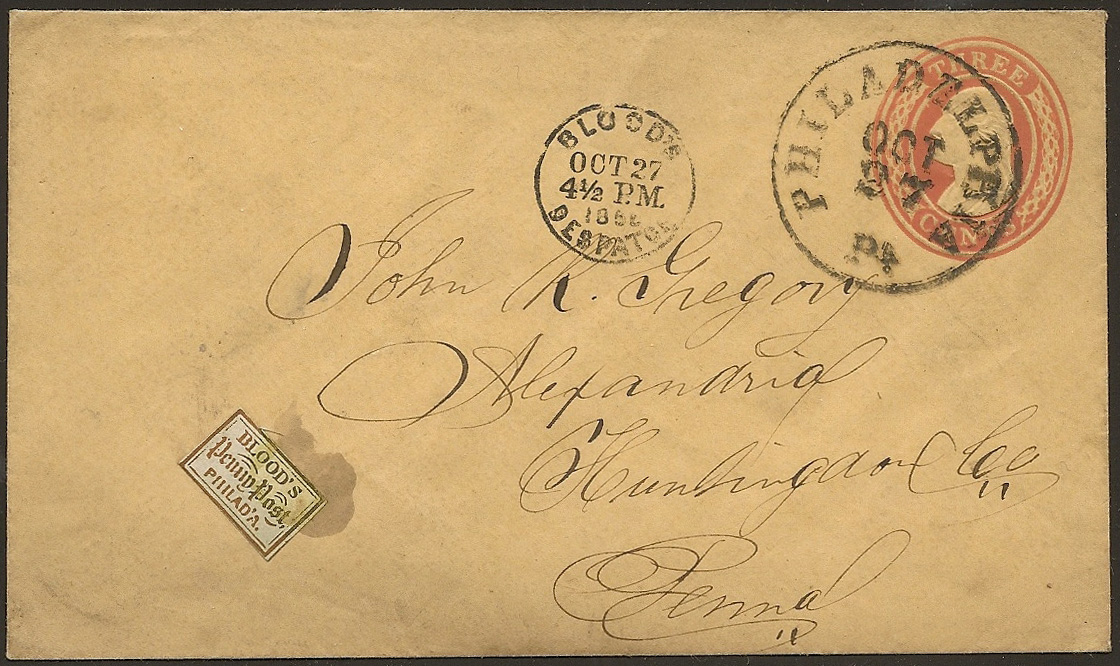 THREE
CENTS
PHILADELPHIA
OCT
27
Pa
BLOOD'S
OCT 27
4½ P.M.
DESPATCH
John R. Gregory
Alexandria
Huntingdon Co
Penna
BLOOD'S
Penny Post,
PHILAD'A.